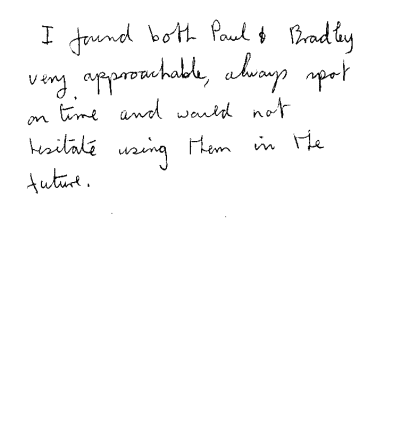 I found both Paul & Bradley
very approachable, always spot
on time and would not
hesitate using them in the
future.